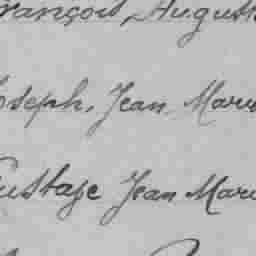 François, Auguste
Joseph, Jean Marie
Gustave Jean Marie